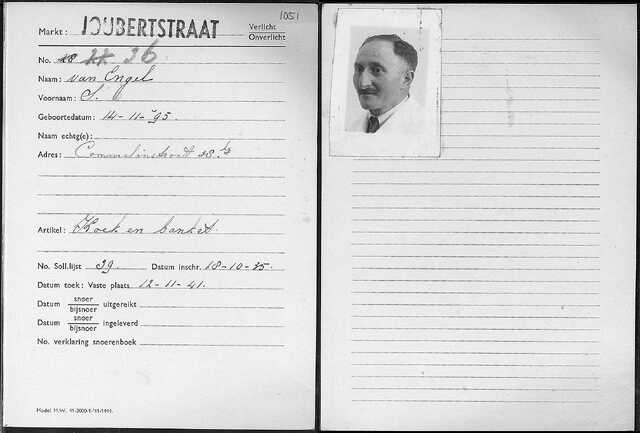 1051
Markt: JOUBERTSTRAAT Verlicht
Onverlicht
No. 26
Naam: van Engel
Voornaam: S.
Geboortedatum: 14-11-'95.
Naam echtg(e):
Adres: Commelinstraat 28
Artikel: Koek en banket.
No. Soll.lijst 39. Datum inschr. 18-10-35.
Datum toek: Vaste plaats 12-11-41.
Datum snoer
bijsnoer uitgereikt
Datum snoer
bijsnoer ingeleverd
No. verklaring snoerenboek